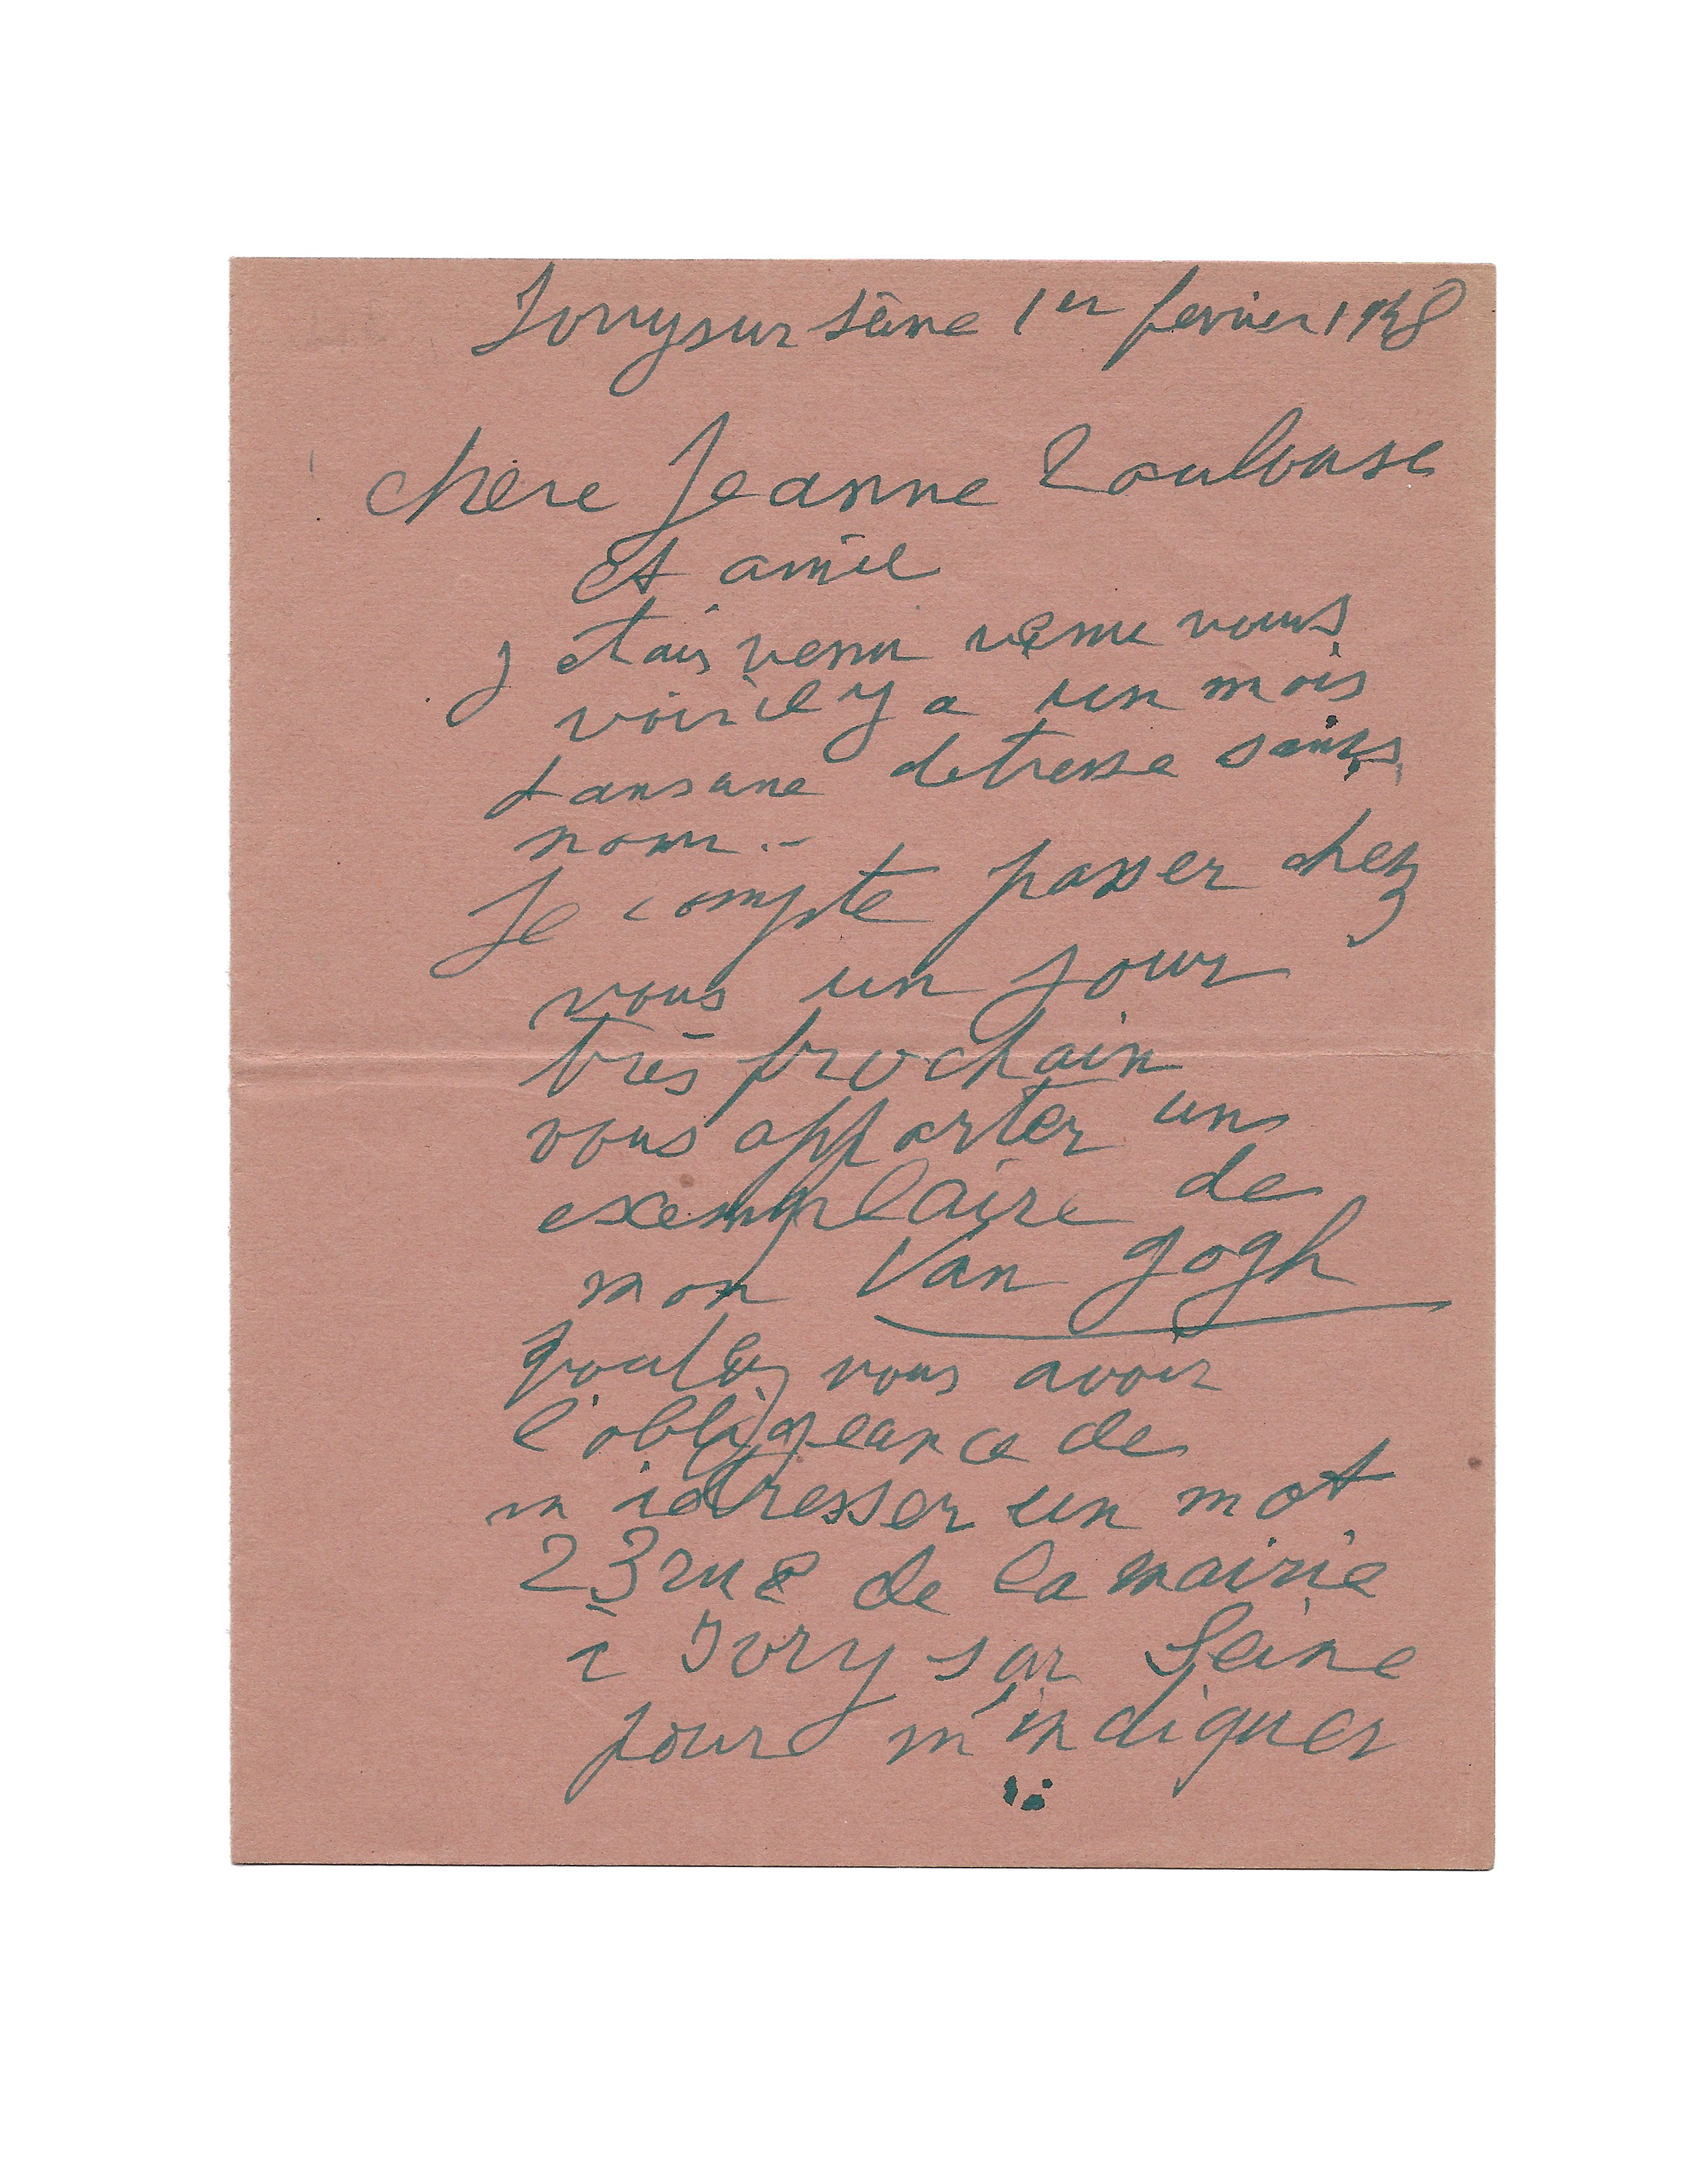 Ivry sur Seine 1er fevrier 1948
chere Jeanne Toulouse
et amie
j etais venu venu vous
voir il y a un mois
dans une detresse sans
nom.-
Je compte passer chez
vous un jour
très prochain
vous apporter un
exemplaire de
mon Van Gogh
voulez vous avoir
l'obligeance de
m adresser un mot
23 rue de la mairie
à Ivry sur Seine
pour m'indiquer